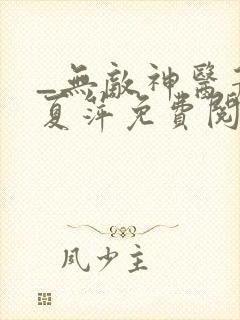 _無敵神醫
夏萍免費閱
風少主